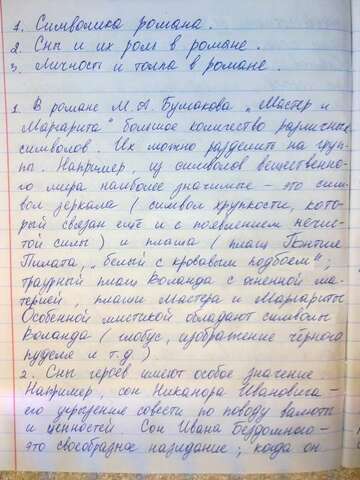 1. Символика романа.
2. Сны и их роль в романе.
3. Личность и толпа в романе.
1. В романе М. А. Булгакова „Мастер и
Маргарита" большое количество различных
символов. Их можно разделить на груп-
пы. Например, из символов вещественно-
го мира наиболее значимые - это сим-
вол зеркала (символ хрупкости, кото-
рый связан ещё и с появлением нечис-
той силы) и плаща (плащ Понтия
Пилата, „белый с кровавым подбоем";
траурный плащ Воланда с огненной ма-
терией, плащи Мастера и Маргариты
Особенной мистикой обладают символы
Воланда (глобус, изображение чёрного
пуделя и т.д.).
2. Сны героев имеют особое значение.
Например, сон Никанора Ивановича -
его угрызение совести по поводу валюты
и ценностей. Сон Ивана Бездомного -
это своеобразное назидание; когда он